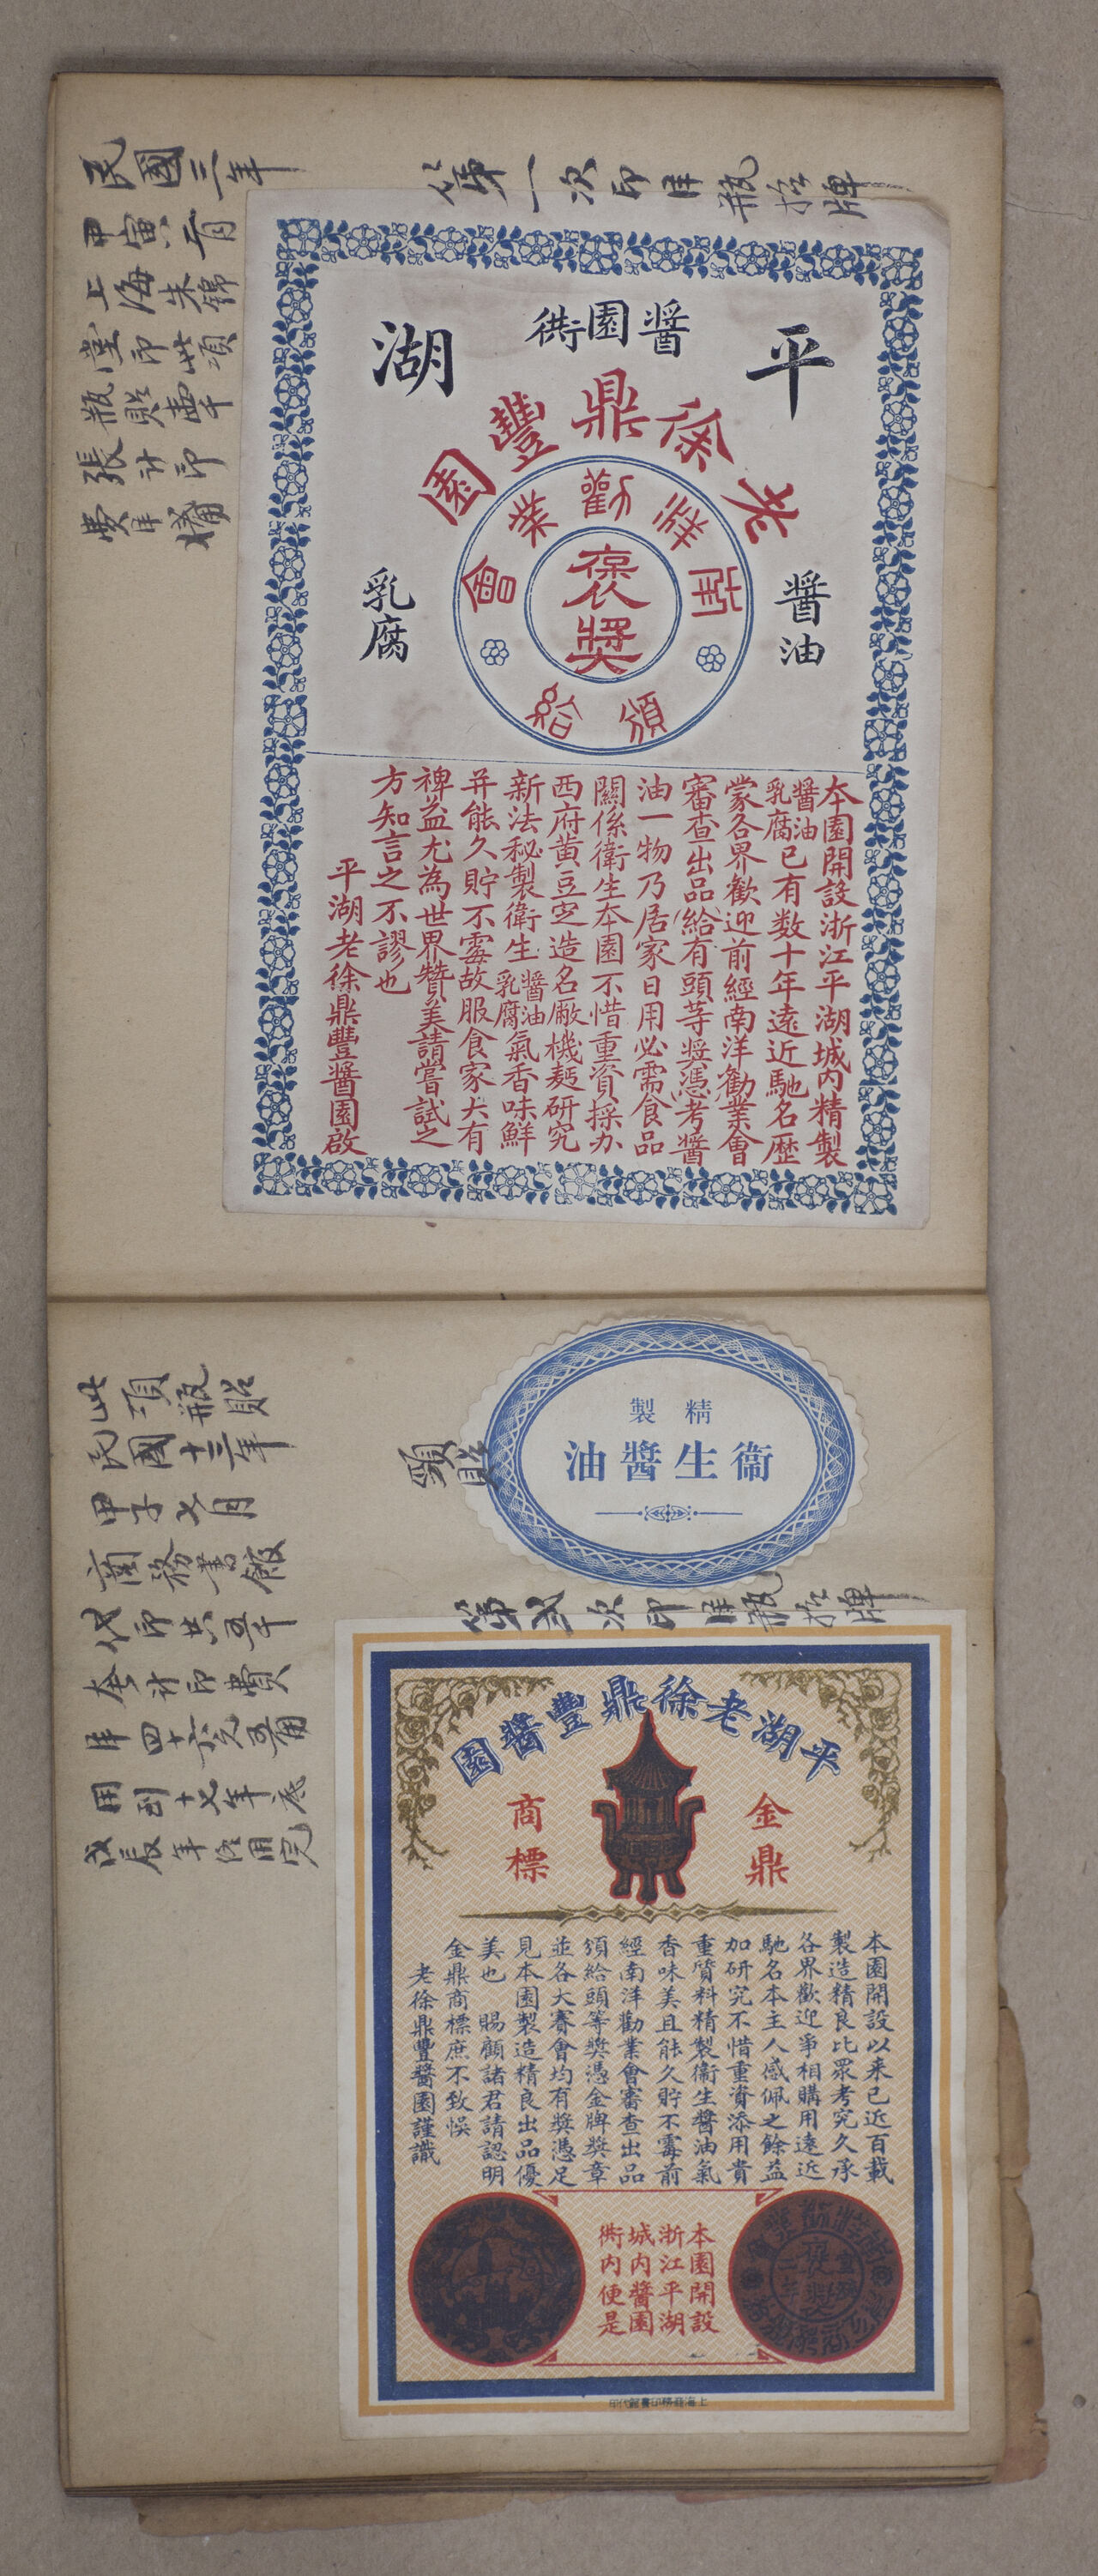 第一次印洋瓶招牌
民國三年
甲寅五月
上海朱錦
堂印此項
瓶貼壹千
張計印
費洋
平湖
醬園衖
老徐鼎豐園
南洋勸業會
頒給
褒獎
醬油
乳腐
本園開設浙江平湖城内精製
醬油乳腐已有数十年遠近馳名歷
蒙各界歡迎前經南洋勧業會
審查出品給有頭等奬憑考醬
油一物乃居家日用必需食品
關係衛生本園不惜重資採办
西府黄豆定造名厰機麪研究
新法秘製衛生醬油乳腐氣香味鮮
并能久貯不霉故服食家大有
裨益尤為世界贊美請嘗試之
方知言之不謬也
平湖老徐鼎豐醬園啟
頸貼
精製
衞生醬油
第弍次印洋瓶招牌
此項瓶貼
民國十三年
甲子七月
商務書館
代印共五千
套計印費
洋四十六元五角
用到十七年底
戊辰年終用完
平湖老徐鼎豐醬園
金鼎
商標
本園開設以来已近百載
製造精良比眾考究久承
各界歡迎爭相購用遠近
馳名本主人感佩之餘益
加研究不惜重資添用貴
重質料精製衞生醬油氣
香味美且能久貯不霉前
經南洋勸業會審查出品
頒給頭等獎憑金牌獎章
並各大賽會均有獎憑足
見本園製造精良出品優
美也 賜顧諸君請認明
金鼎商標庶不致悞
老徐鼎豐醬園謹識
本園開設
浙江平湖
城内醬園
衖内便是
上海商務印書館代印